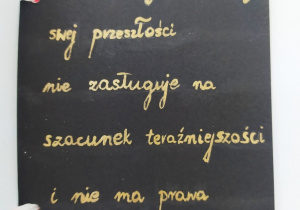 swej przeszłości
nie zasługuje na
szacunek teraźniejszości
i nie ma prawa